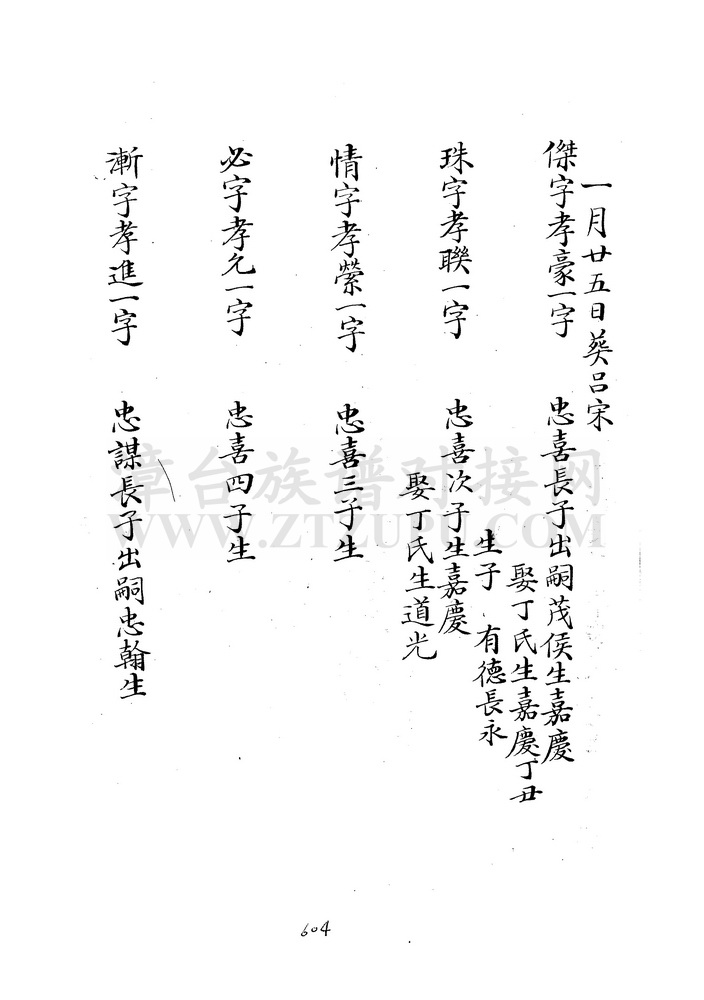 一月廿五日葵吕宋
傑字孝豪一字 忠喜長子出嗣茂侯生嘉慶
娶丁氏生嘉慶丁丑
生子 有德長永
珠字孝聯一字 忠喜次子生嘉慶
娶丁氏生道光
情字孝縈一字 忠喜三子生
必字孝允一字 忠喜四子生
漸字孝進一字 忠謀長子出嗣忠翰生
章台族谱对接网
WWW.ZTZUPU.COM
604